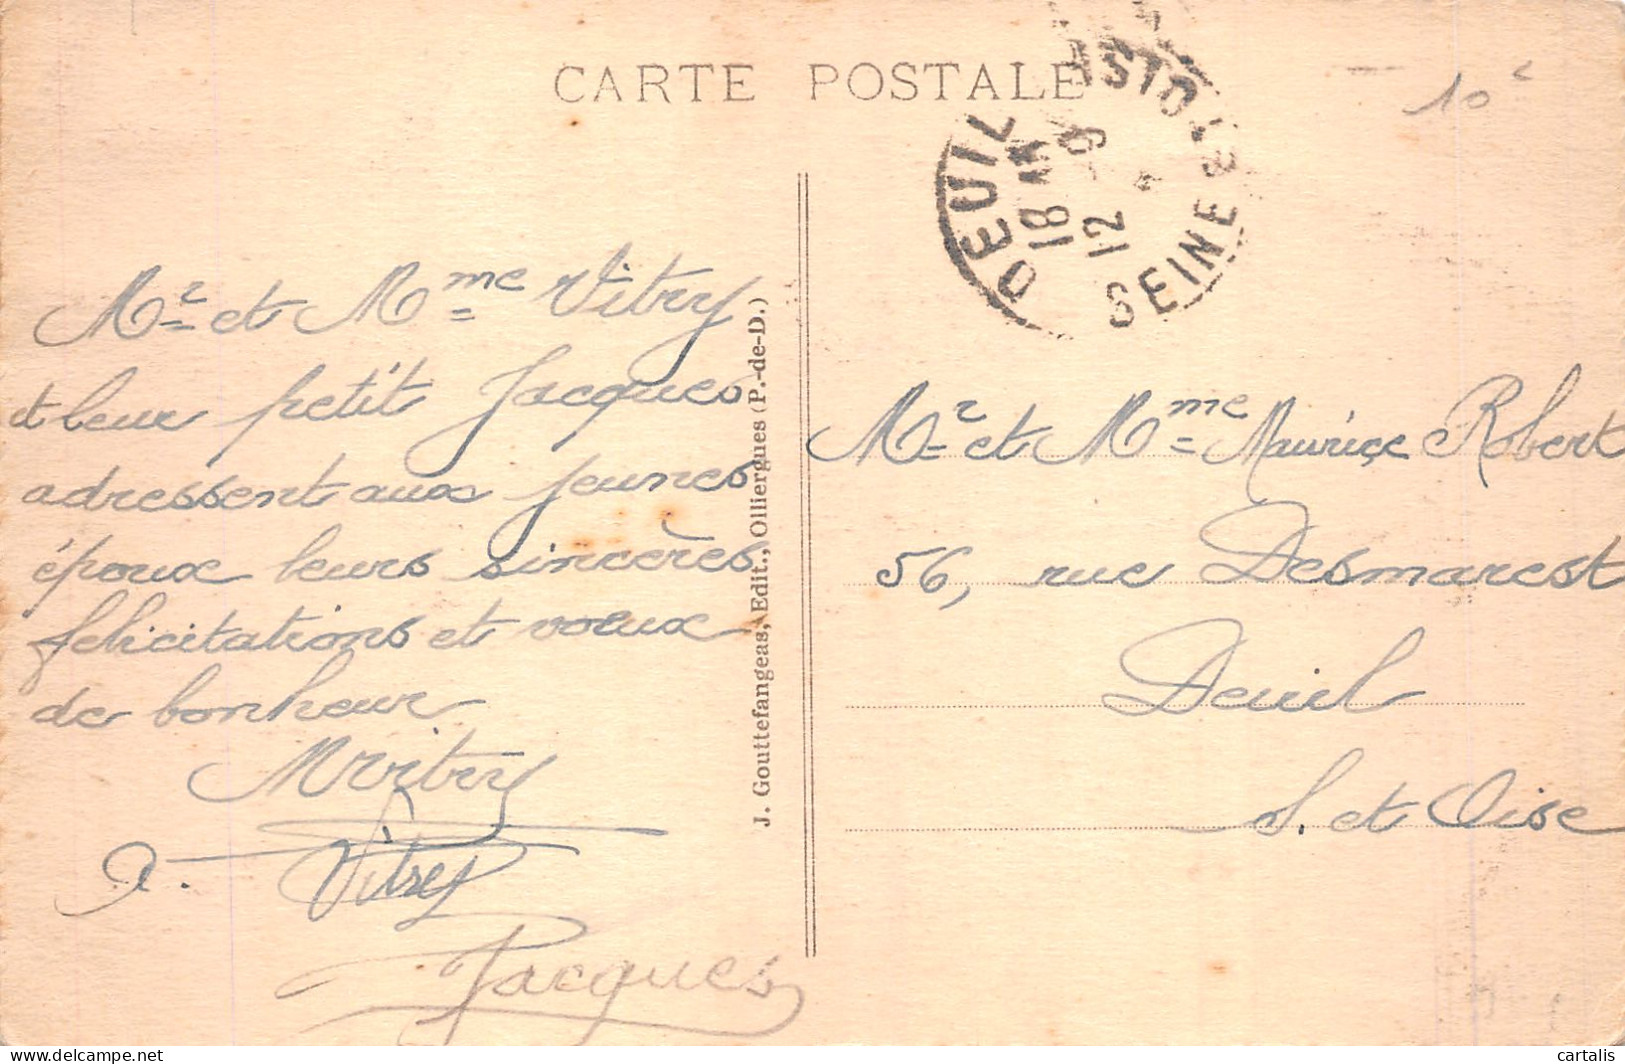 CARTE POSTALE
10c
DEUIL
18
12 -9
SEINE
Mr et Mme Vitry
et leur petit Jacques
adressent aux jeunes
époux leurs sincères
félicitations et voeux
de bonheur
MVitry
A. Vitry
Jacques
J. Gouttefangeas, Edit., Olliergues (P.-de-D.)
Mr et Mme Maurice Robert
56, rue Desmarest
Deuil
S. et Oise
cartalis